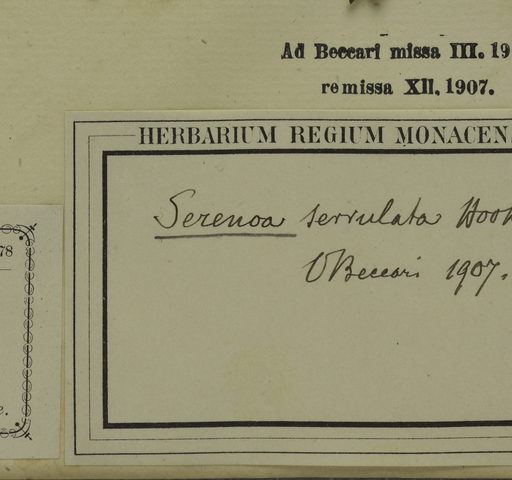 Ad Beccari missa III. 19
remissa XII. 1907.
HERBARIUM REGIUM MONACENS
Serenoa serrulata Hook
O Beccari 1907.
78
e.